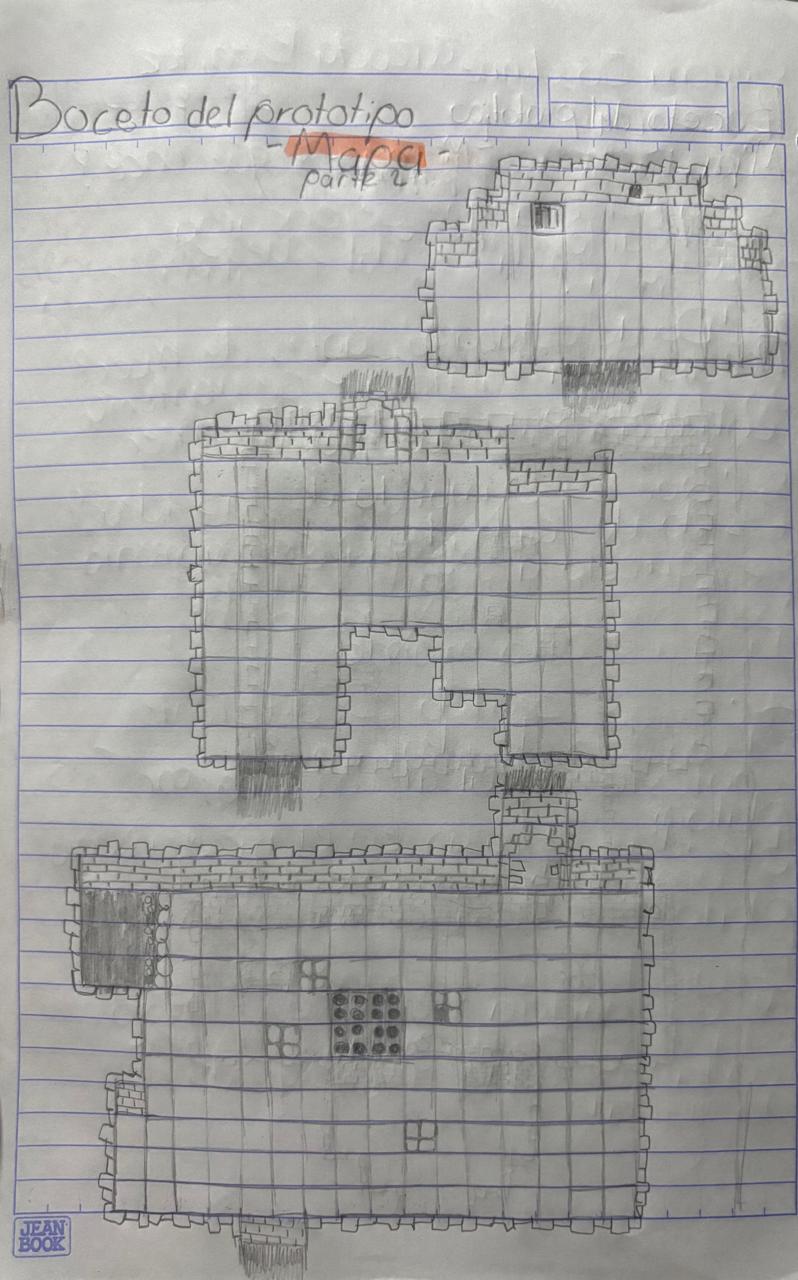 Boceto del prototipo
- Mapa -
parte 2
JEAN
BOOK